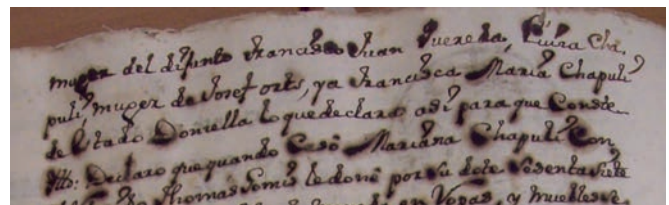 muger del difunto Francisco Juan Puereda, Luisa Cha,
puli, muger de Josef orts, ya Francisca Maria Chapuli
de Estado Donzella lo que declaro asi para que Conste
Itt: Declaro que quando Casó Mariana Chapuli Con
Thomas Gomis le doné por su dote Sesenta Siete
en Ropas, y muebles